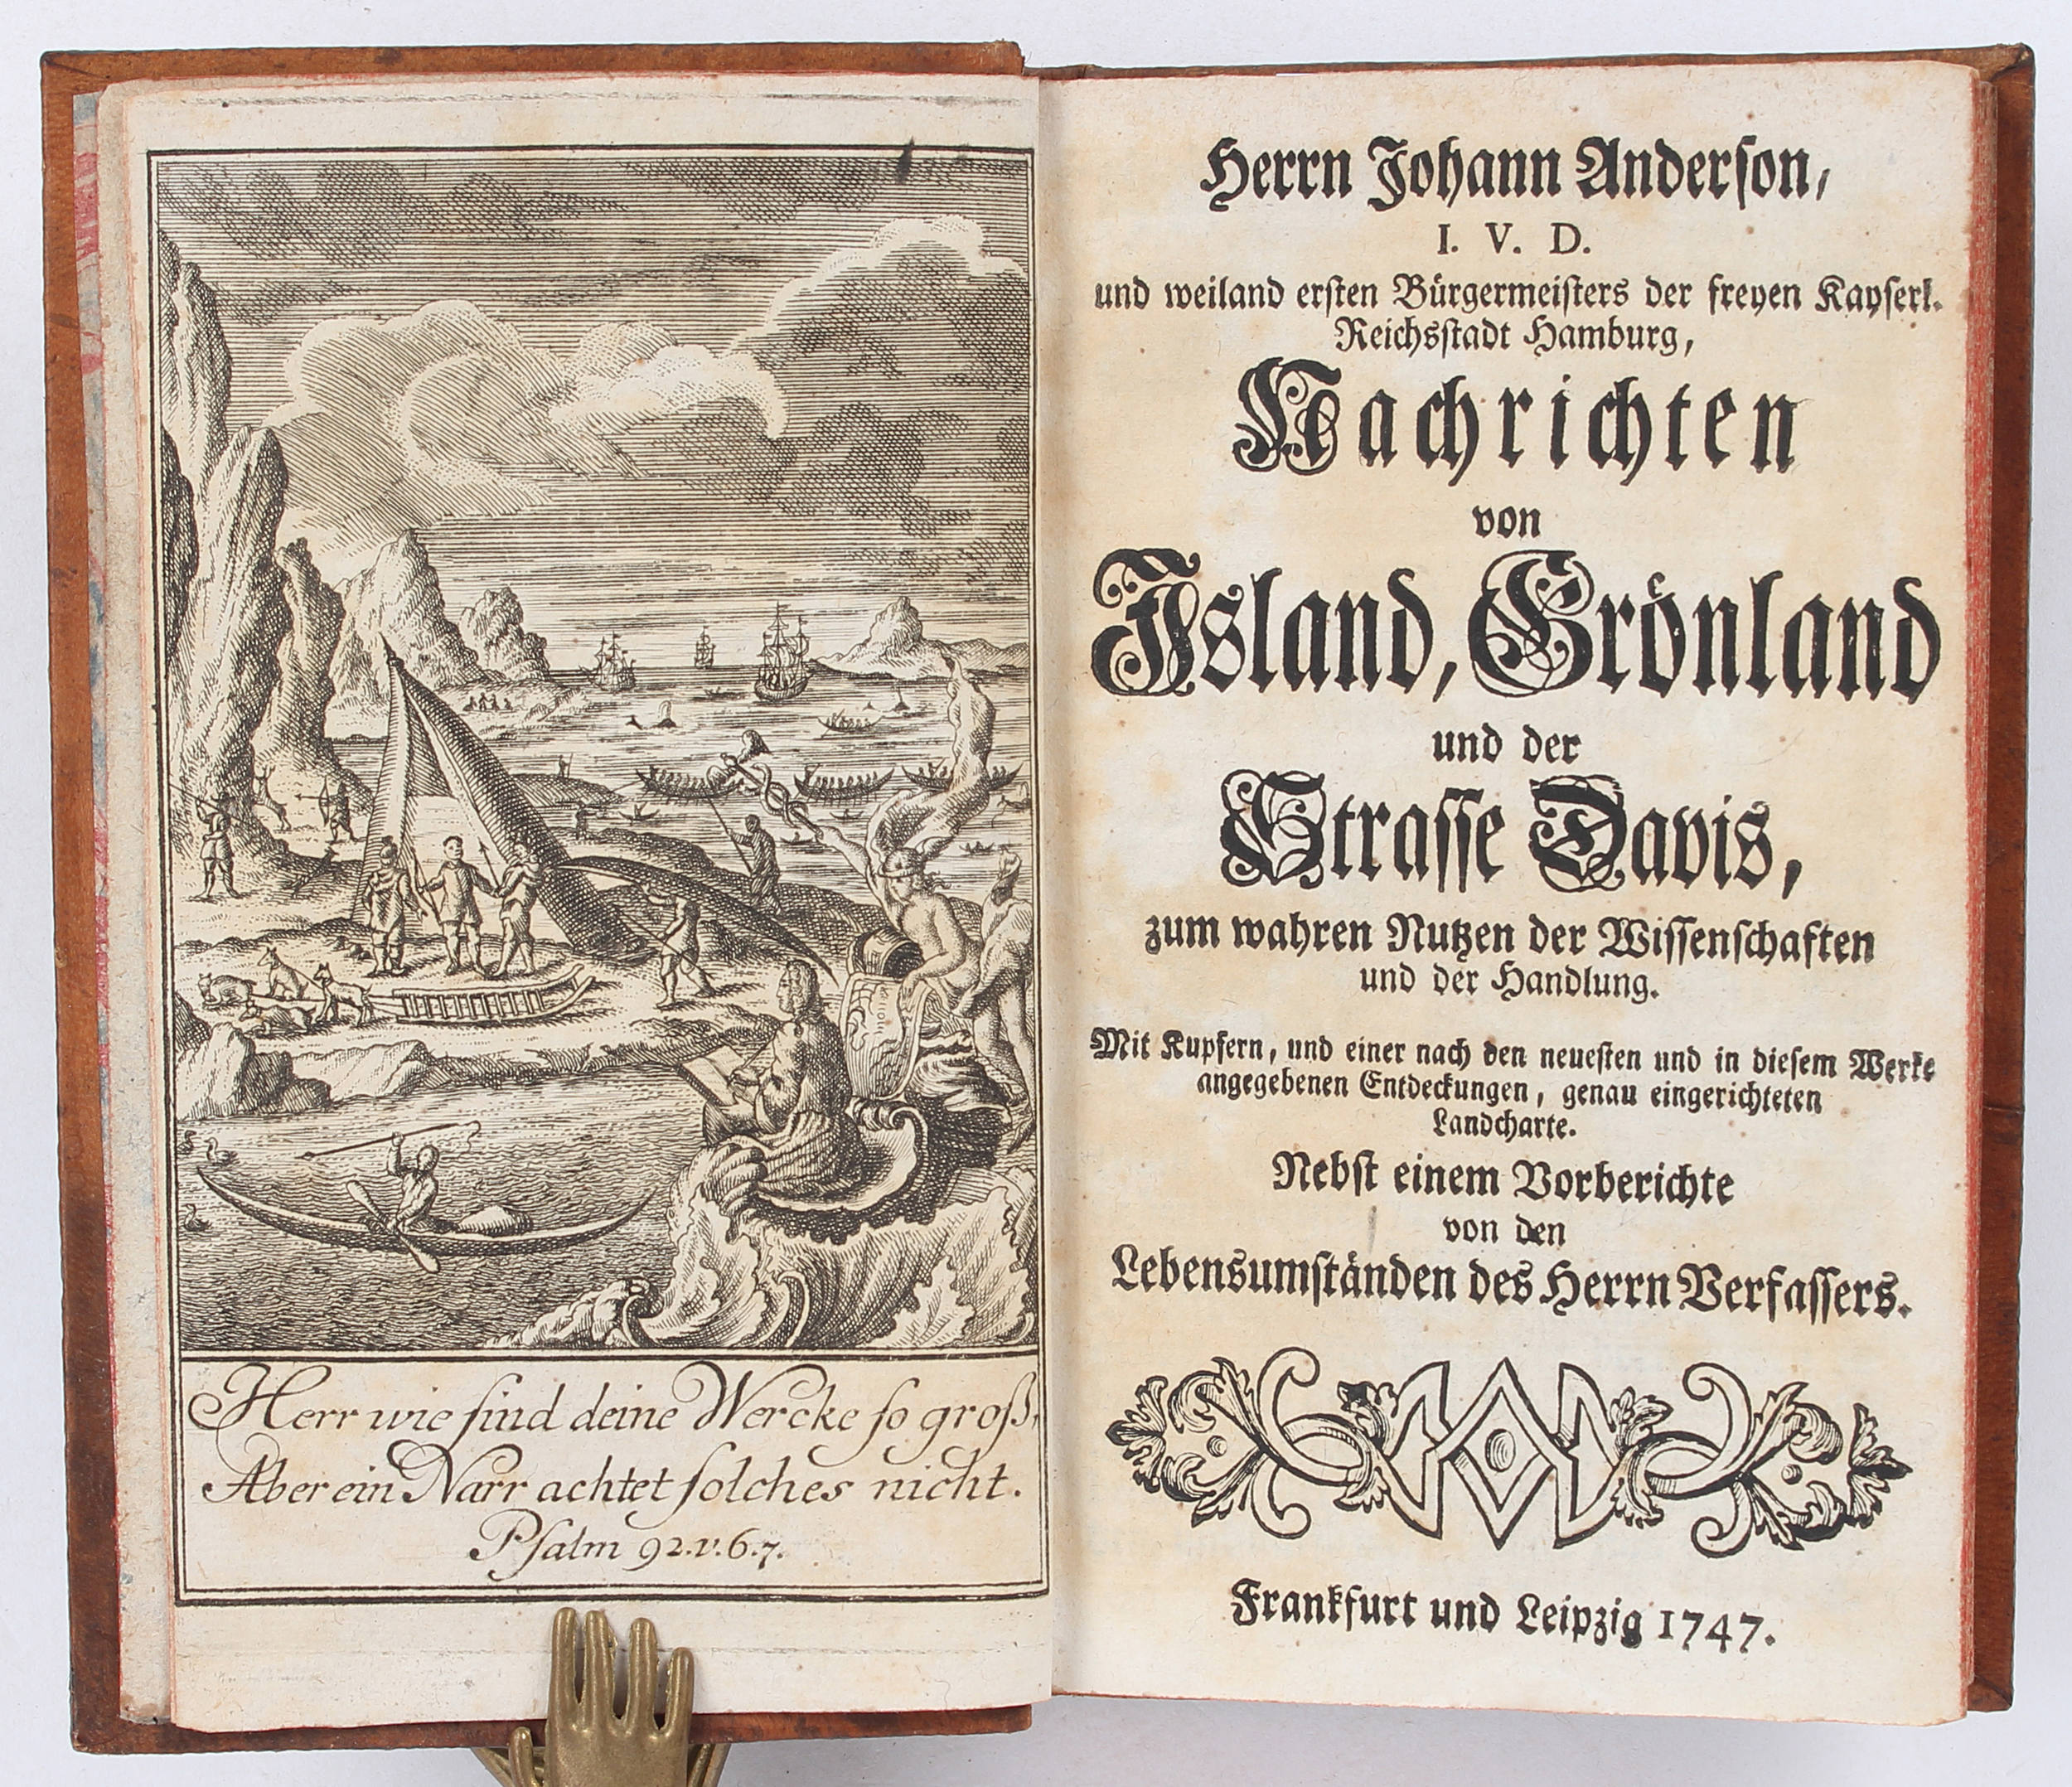 Herr wie sind deine Wercke so groß,
Aber ein Narr achtet solches nicht.
Psalm 92.v.6.7.
Herrn Johann Anderson,
I. V. D.
und weiland ersten Bürgermeisters der freyen Kayserl.
Reichsstadt Hamburg,
Nachrichten
von
Island, Grönland
und der
Strasse Davis,
zum wahren Nutzen der Wissenschaften
und der Handlung.
Mit Kupfern, und einer nach den neuesten und in diesem Werke
angegebenen Entdeckungen, genau eingerichteten
Landcharte.
Nebst einem Vorberichte
von den
Lebensumständen des Herrn Verfassers.
Frankfurt und Leipzig 1747.